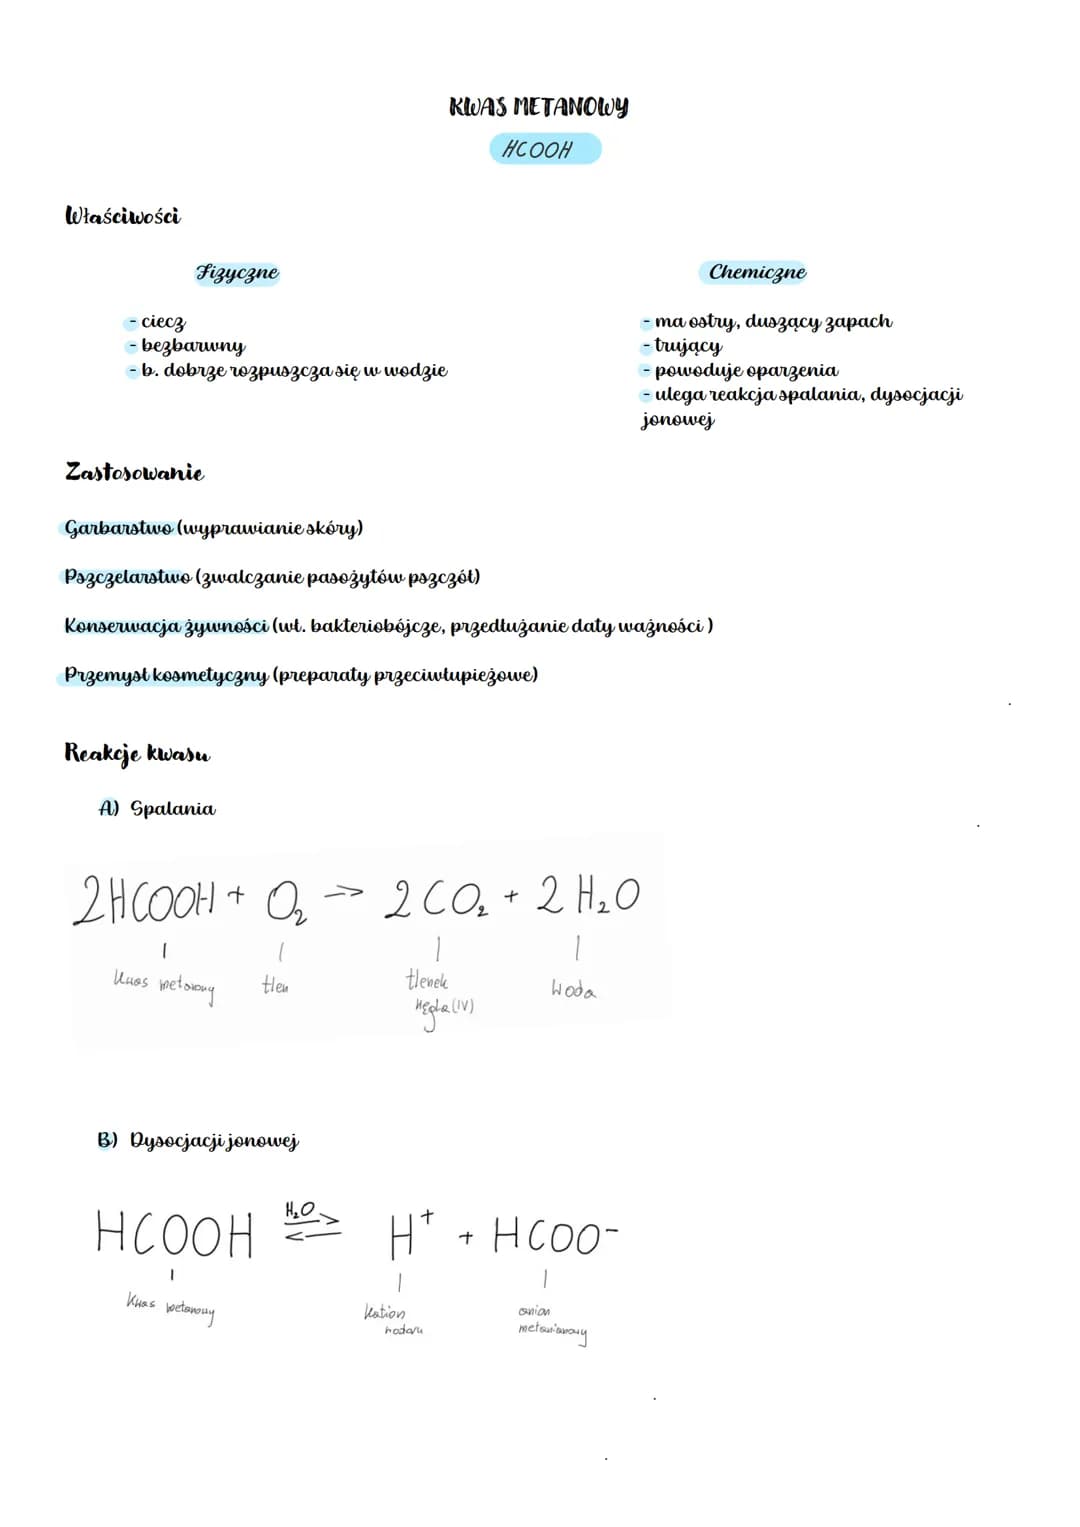 KWAS METANOWY
HCOOH
Właściwości
Fizyczne
- ciecz
- bezbarwny
- b. dobrze rozpuszcza się w wodzie
Chemiczne
- ma ostry, duszący zapach
- trujący
- powoduje oparzenia
- ulega reakcja spalania, dysocjacji
jonowej
Zastosowanie
Garbarstwo (wyprawianie skóry)
Pszczelarstwo (zwalczanie pasożytów pszczół)
Konserwacja żywności (wł. bakteriobójcze, przedłużanie daty ważności )
Przemysł kosmetyczny (preparaty przeciwłupieżowe)
Reakcje kwasu
A) Spalania
2HCOOH + O₂ -> 2CO₂ + 2H₂O
kwas metanowy
tlen
tlenek
węgla (IV)
woda
B) Dysocjacji jonowej
H₂O
HCOOH ⇌ H⁺ + HCOO⁻
kwas metanowy
kation
wodoru
anion
metanianowy